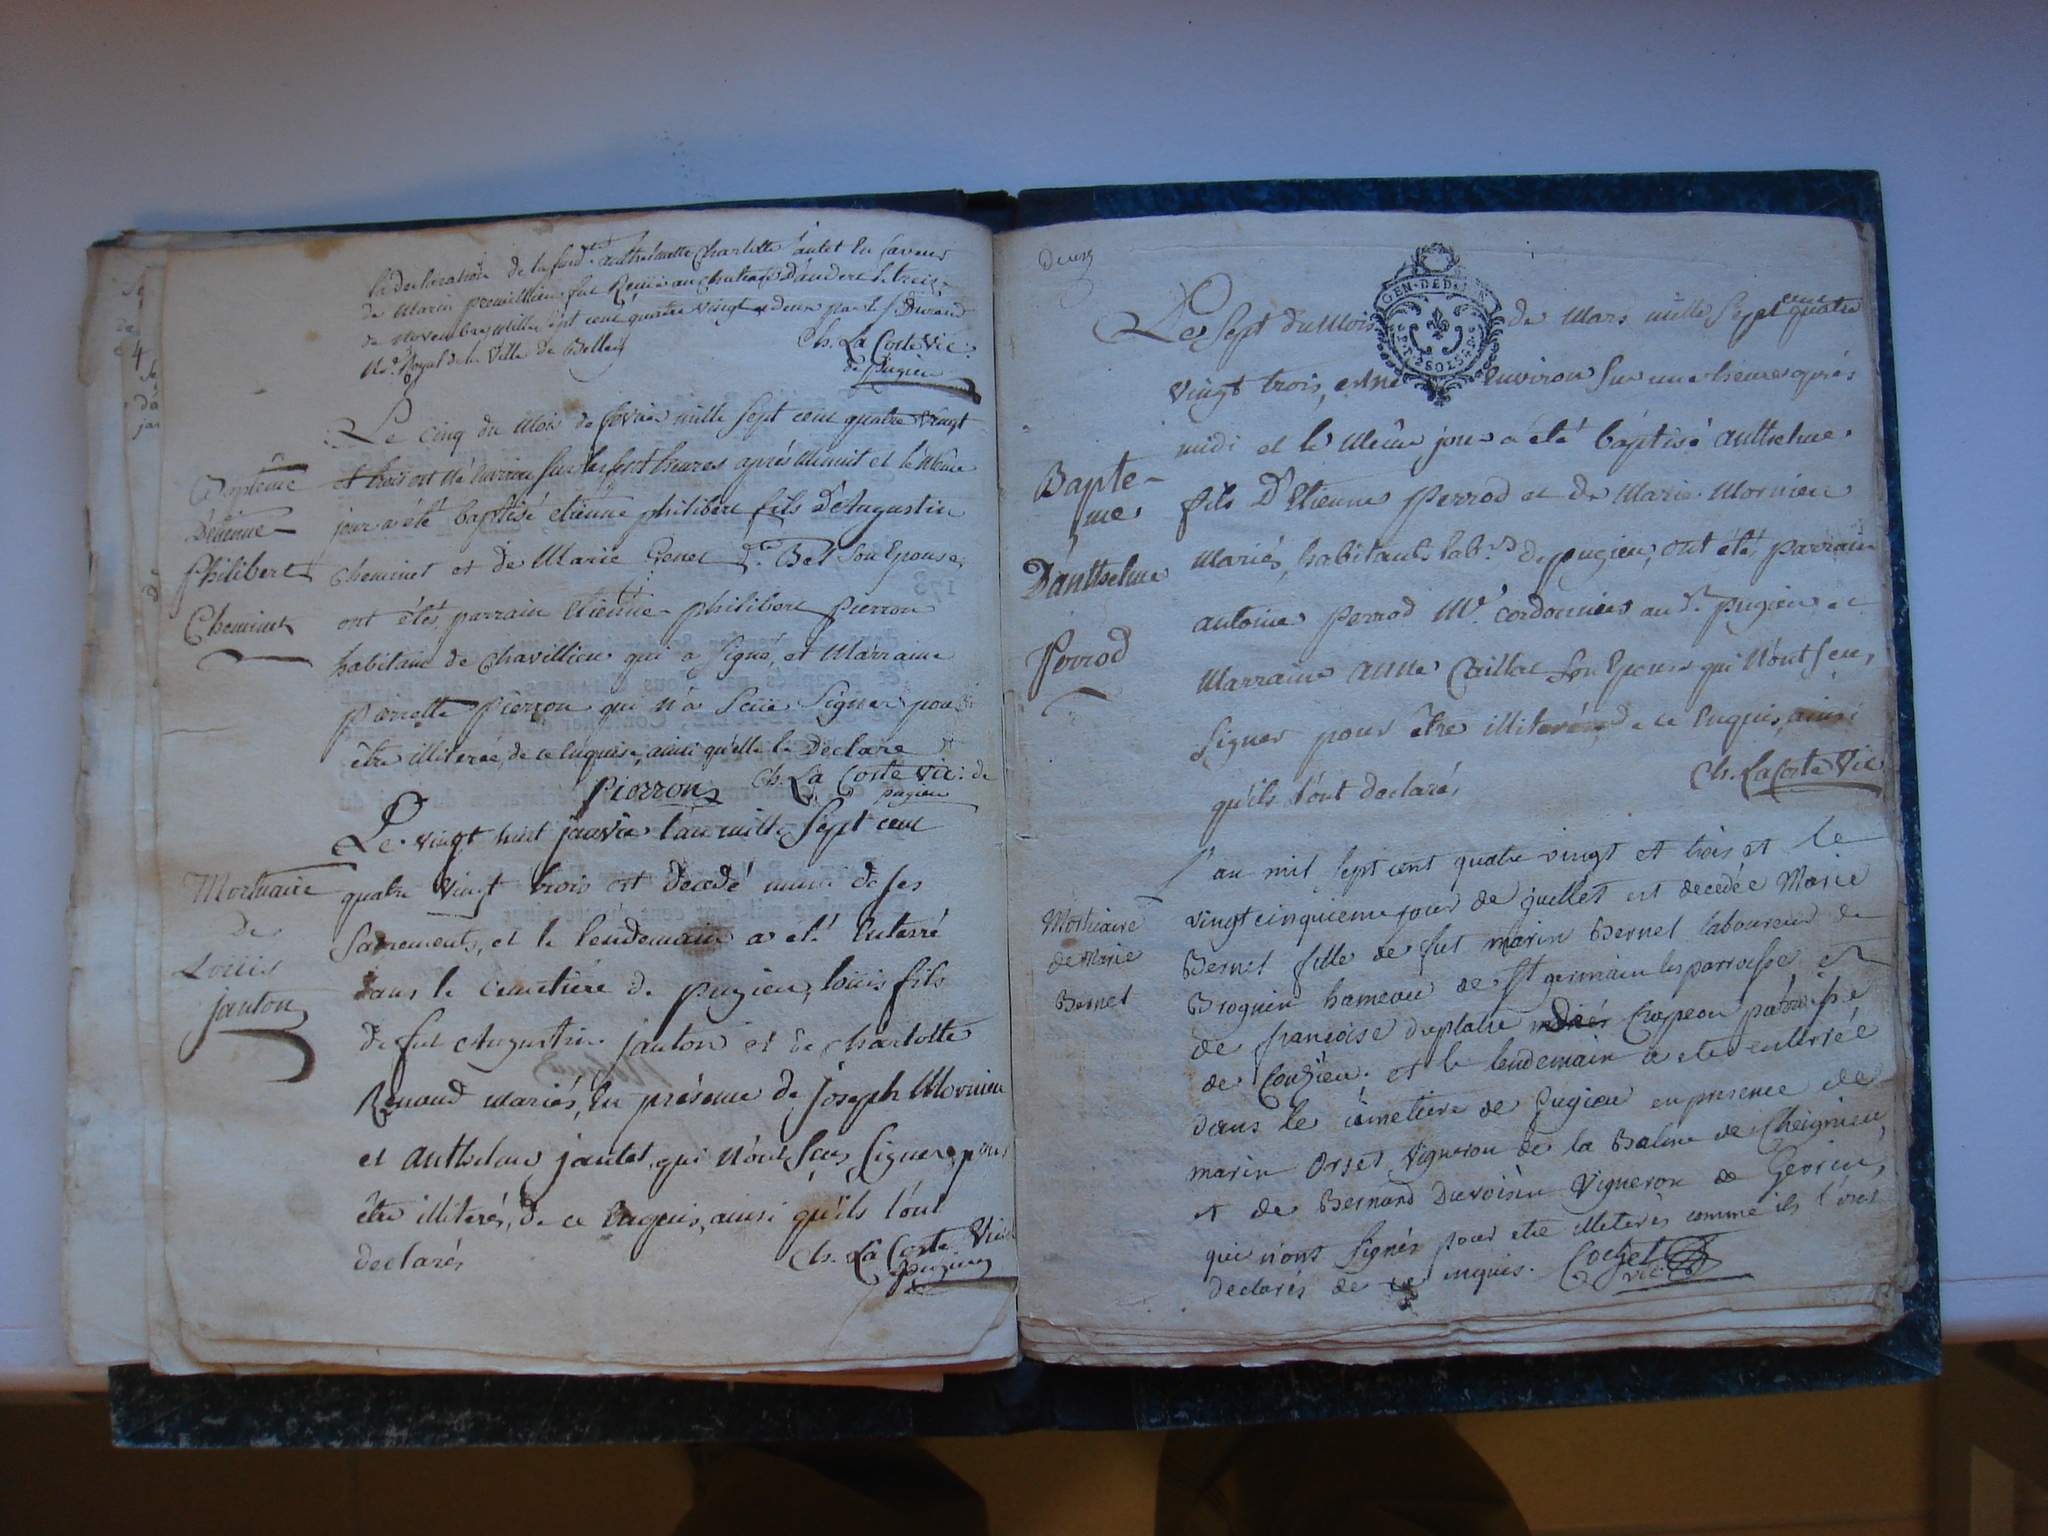 la declaration de la susd.te anthelmette Charlotte jautet En faveur
de Marin premillieu fut Reçüe au Contract D'audere le treize
de Novembre Mille Sept cent quatre vingt et deux par le S.r Durand
N.re Royal de la Ville de Belley
Ch. La Coste Vic.
de Pugieu
Le cinq du Mois de fevrier mille Sept cent quatre vingt
et trois est Né Environ Sur les Sept heures aprés Minuit et le Même
jour a été baptisé etienne philibert fils D'Augustin
Cheminet et de Marie Genet d.te Bet Son Epouse,
ont étés parrain Etienne philibert Pierron
habitant de Chavillieu qui a Signé, et Marraine
Pierrette Pierron qui n'a Sçeüe Signer pour
être illiterée, de ce Enquise, ainsi qu'elle l'a Déclaré
Pierron
Ch. La Coste Vic: de
pugieu
Baptême
D'étienne
Philibert
Cheminet
Le vingt huit janvier l'an mille Sept cent
quatre Vingt trois est Decedé muni de Ses
Sacrements, et le lendemain a eté Enterré
dans le Cimetière de pugieu, louis fils
de fut Augustin janton et de charlotte
Renaud mariés, En présence de joseph Mornieu
et Anthelme jautet, qui N'ont Sçus Signer, pour
être illiterés, de ce Enquis, ainsi qu'ils l'ont
declarés
Ch. La Coste Vic.
Pugieu
Mortuaire
De
Louis
janton
Deux
GEN·DE DIJON
2 SOLS 4 D.
Le Sept du Mois de Mars mille Sept cent quatre
Vingt trois, est né Environ Sur une heure aprés
midi et le Même jour a été baptisé anthelme
fils D'Etienne Perrod et de Marie Mornieu
Mariés, habitants lab.rs de pugieu, ont étés Parrain
antoine Perrod M.e cordonnier au d.t Pugieu et
Marraine Anne Caillat Son Epouse qui N'ont Sçeu,
Signer pour être illiterés, de ce Enquis, ainsi
qu'ils l'ont declaré,
Ch. La Coste Vic
Bapte-
me
D'anthelme
Perrod
l'an mil sept cent quatre vingt et trois et le
vingtcinquieme jour de juillet est decedée Marie
Bernet fille de fut marin Bernet laboureur de
Brognin hameau de St germain les parroisse et
de françoise duplatre Crapeou paroisse
de Conzieu. et le lendemain a ete enterrée
dans le cimetiere de Pugieu en presence de
marin Orset Vigneron de la Balme de Cheignieu,
et de Bernard Duvoisin Vigneron de Gevrin,
qui n'ont Signés pour etre illiterés comme ils l'ont
declarés de ce enquis.
Cochet
vic.
Mortuaire
de Marie
Bernet